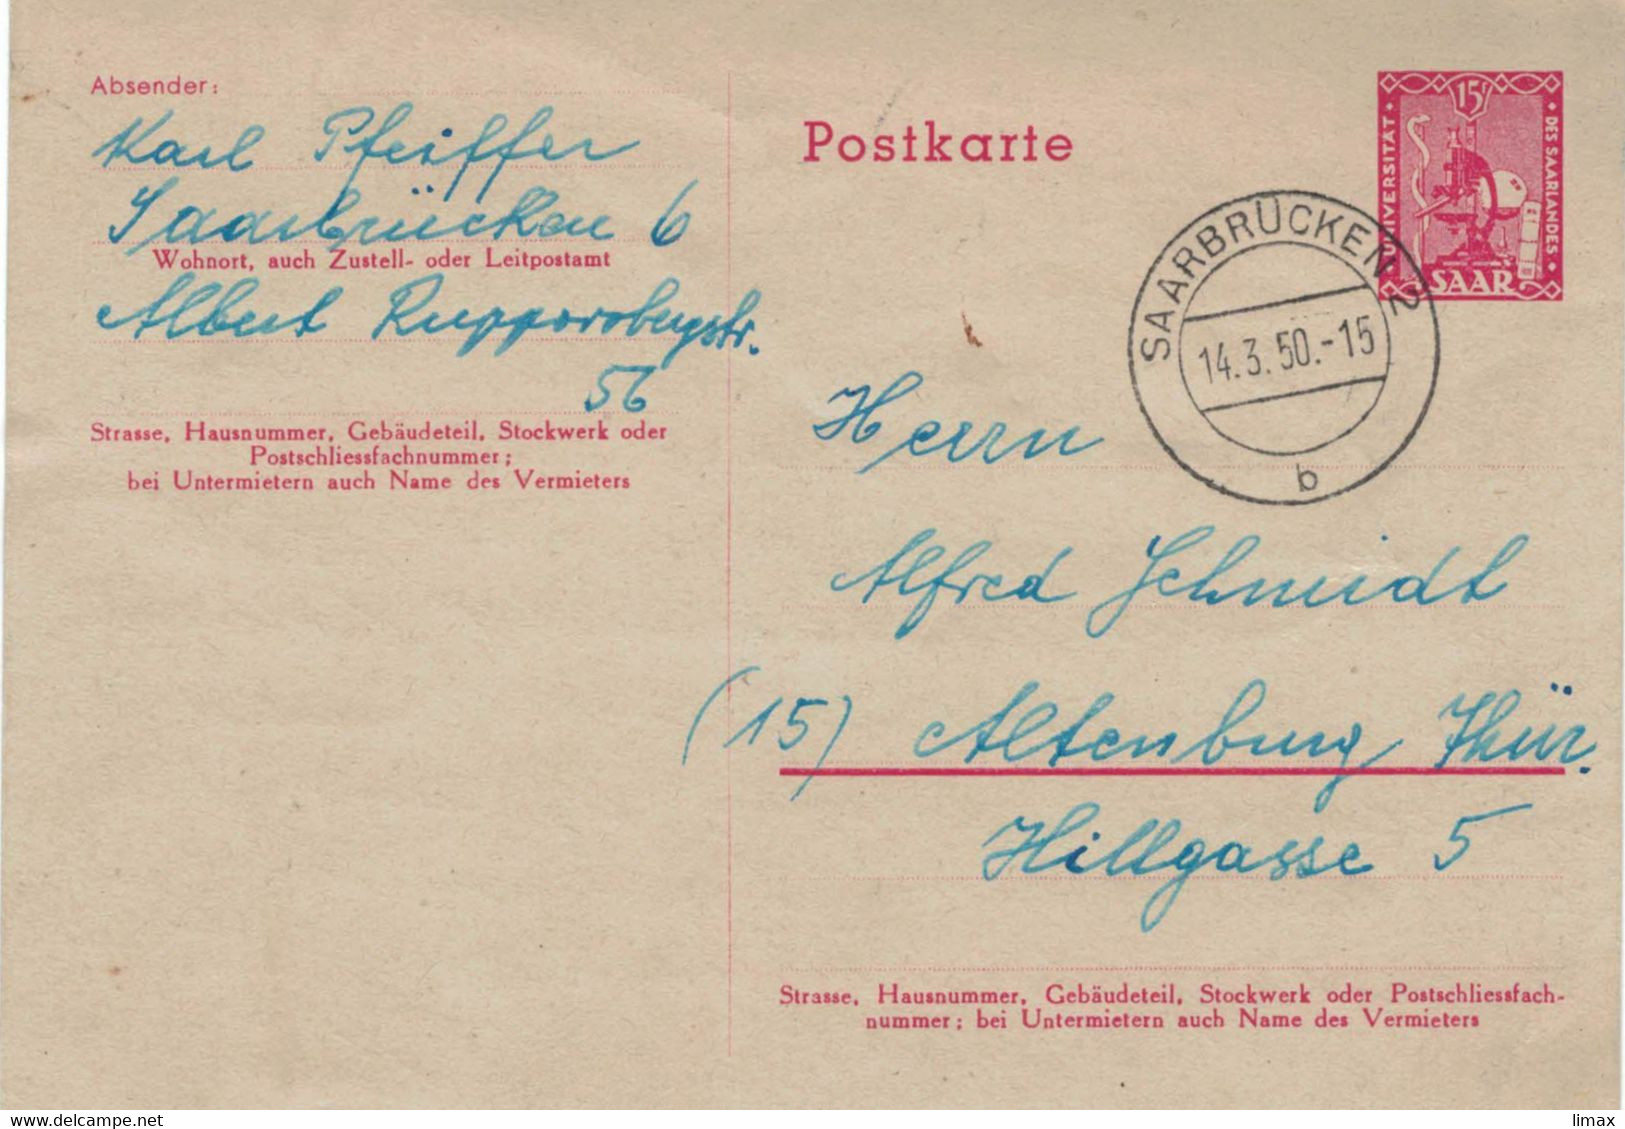 Absender:
Karl Pfeiffer
Saarbrücken 6
Wohnort, auch Zustell- oder Leitpostamt
Albert Rupprobergstr.
56
Strasse, Hausnummer, Gebäudeteil, Stockwerk oder
Postschliessfachnummer;
bei Untermietern auch Name des Vermieters
Postkarte
15F
UNIVERSITÄT
DES SAARLANDES
SAAR
SAARBRÜCKEN 2
14.3.50.-15
b
Herrn
Alfred Schmidt
(15) Altenburg Thür.
Hillgasse 5
Strasse, Hausnummer, Gebäudeteil, Stockwerk oder Postschliessfach-
nummer; bei Untermietern auch Name des Vermieters
www.delcampe.net
limax